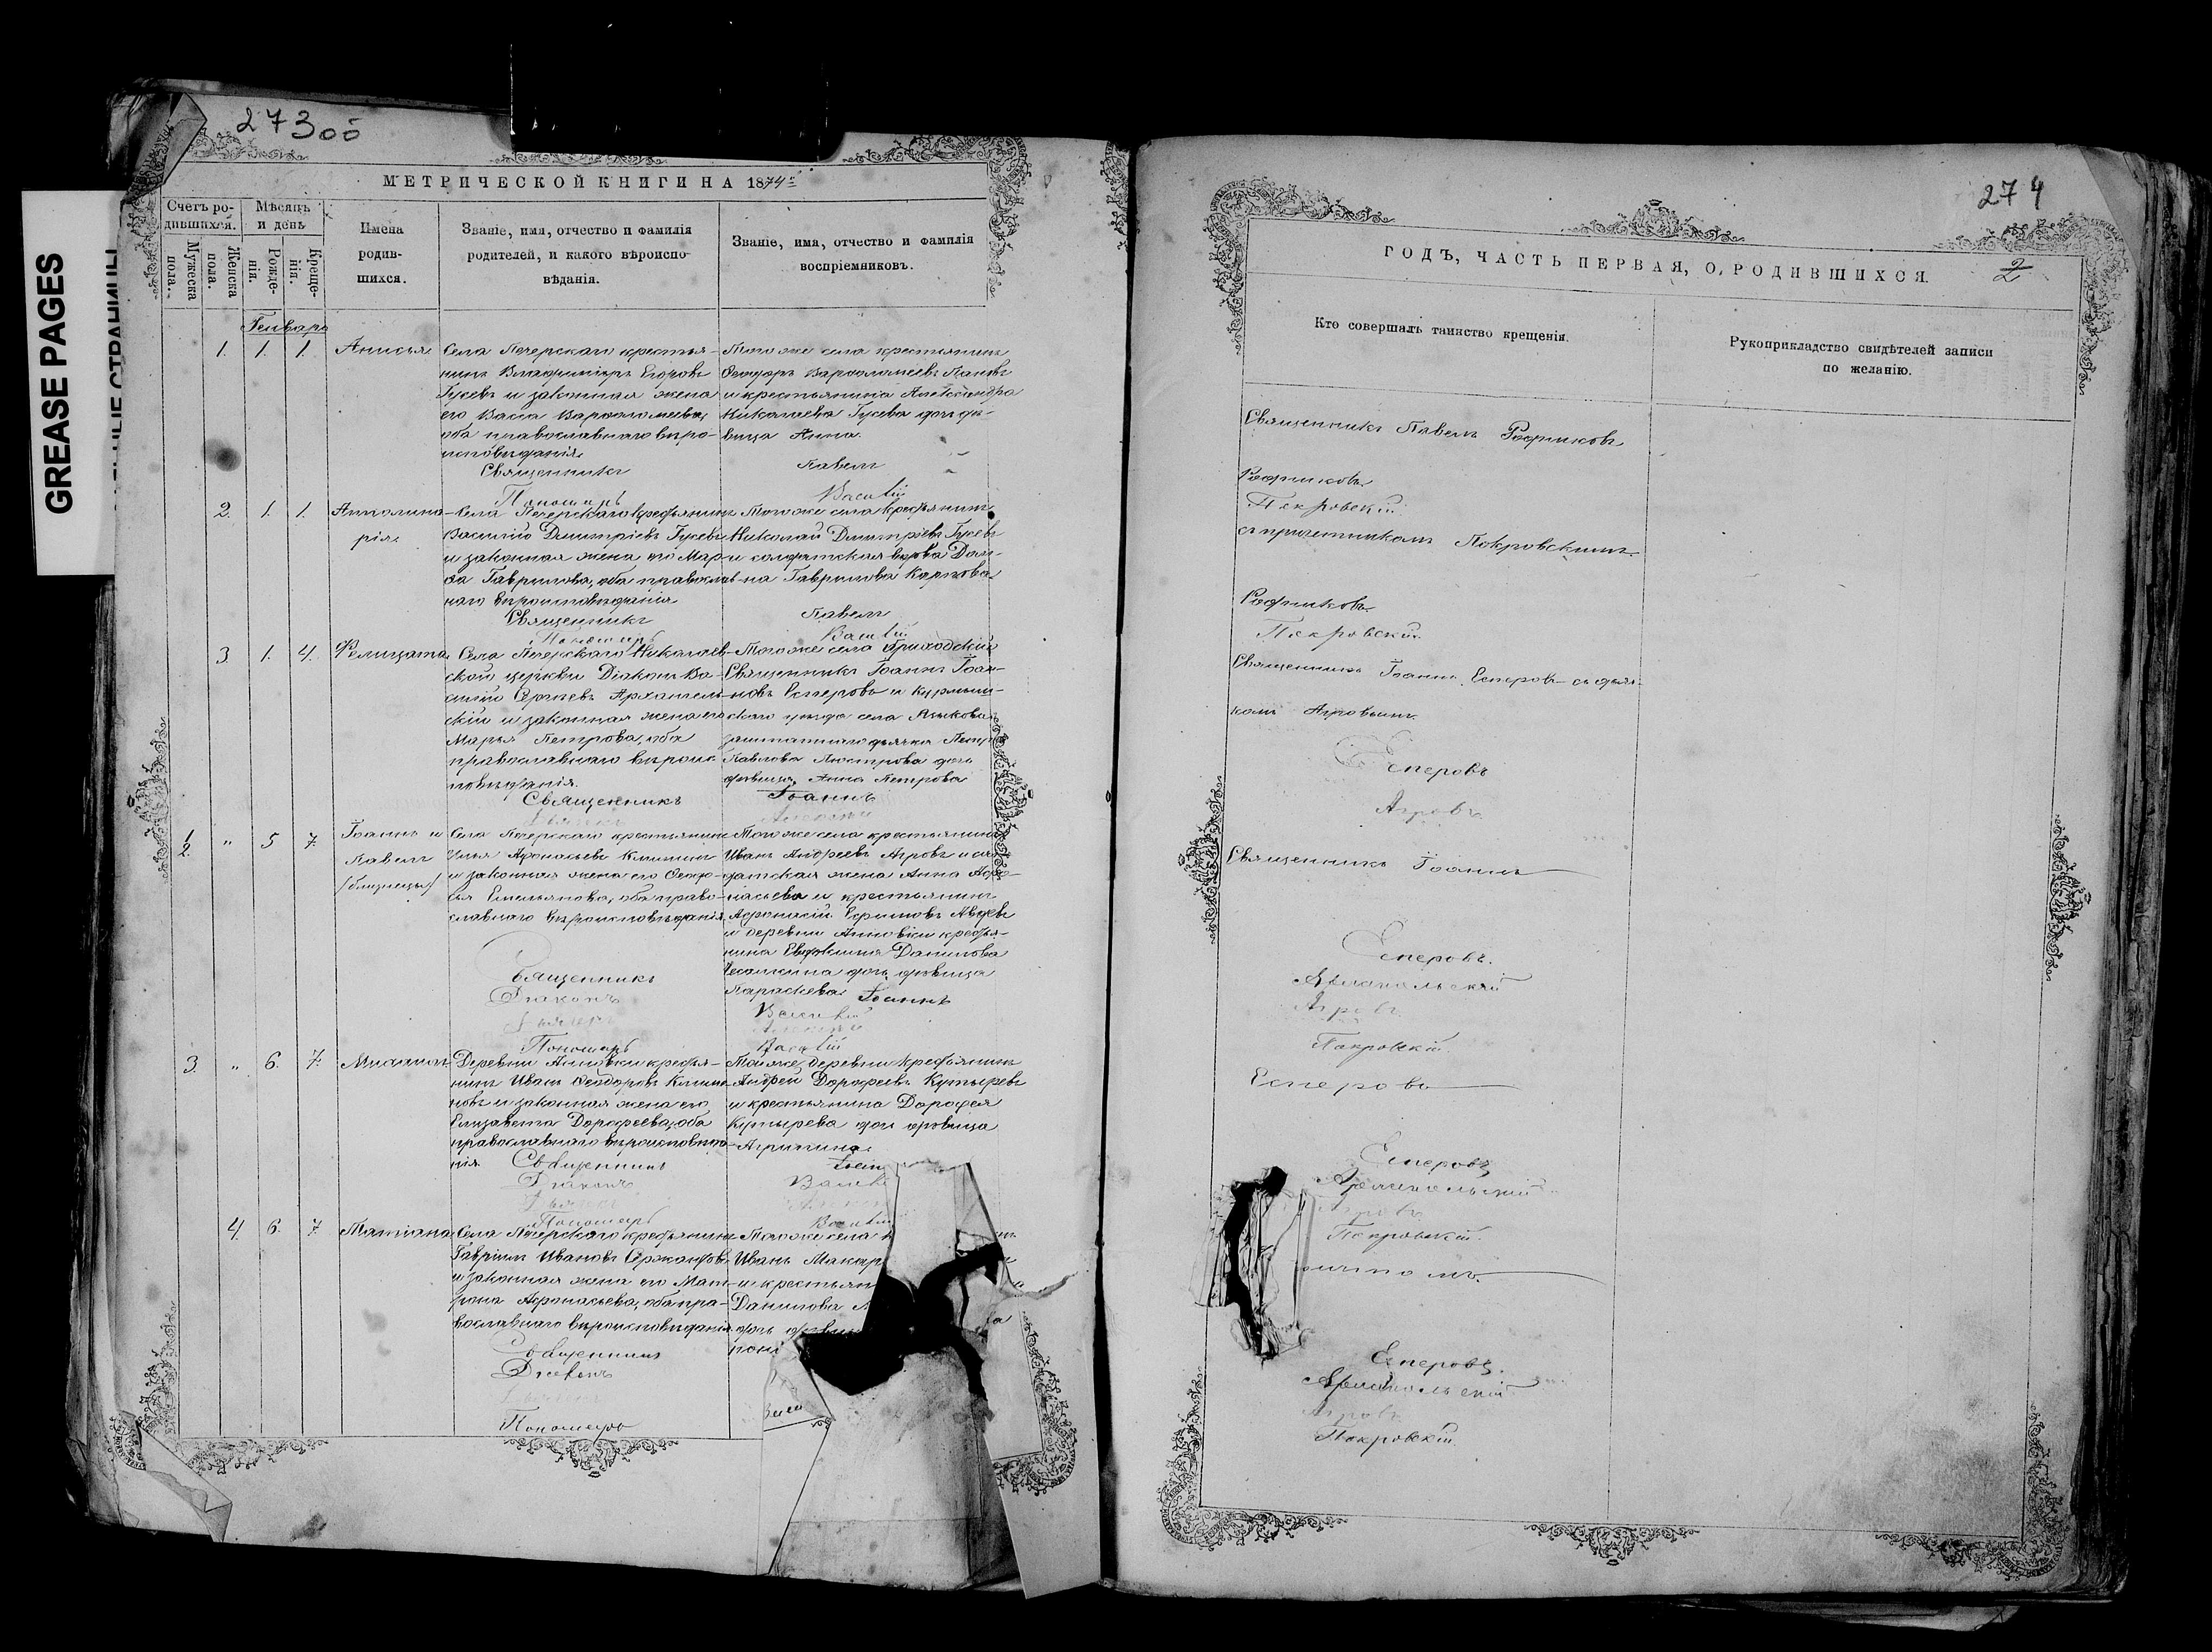 GREASE PAGES
273 об
МЕТРИЧЕСКОЙ КНИГИ НА 1874
Счетъ ро-
дившихся.
Мужеска
пола.
Женска
пола.
Мѣсяцъ
и день
Рожде-
нія.
Креще-
нія.
Имена
родив-
шихся.
Званіе, имя, отчество и фамилія
родителей, и какого вѣроиспо-
вѣданія.
Званіе, имя, отчество и фамилія
воспріемниковъ.
Генваря
1. 1. 1. Анисья
Села Печерскаго крестья-
нинъ Владимиръ Егоровъ
Гусевъ и законная жена
его Васса Варфоломеева,
оба православнаго вѣро-
исповѣданія
Священникъ
Пономарь
Тогоже села крестьянинъ
Ѳеодоръ Варфоломеевъ
и крестьянина Александра
Николаева Гусева дочь дѣ-
вица Анна.
Павелъ
Василій
2. 1. 1. Апполина-
рія
Села Печерскаго крестьянинъ
Василій Димитріевъ Гусевъ
и законная жена его Мар-
Гаврилова, оба православ-
наго вѣроисповѣданія
Священникъ
Пономарь
Тогоже села крестьянинъ
Николай Димитріевъ Гусевъ
и солдатская вдова Дом-
на Гаврилова Карпова
Павелъ
Василій
3. 1. 4. Фелицата
Села Печерскаго Николаев-
ской церкви Діаконъ Ва-
силій Сергѣевъ Архангель-
скій и законная жена его
Марья Петрова, оба
православнаго вѣроис-
повѣданія.
Священникъ
Тогоже села приходскій
Священникъ Іоаннъ Іоан-
новъ Есперовъ и Курмыш-
скаго уѣзда села Языкова
заштатнаго дьячка Петра
Павлова дочь
дѣвица Анна Петрова
Іоаннъ
1.
2. " 5 7 Іоаннъ и
Павелъ
/близнецы/
Села Печерскаго крестьянинъ
Илья Аѳонасьевъ Климинъ
и законная жена его Ѳеодо-
сья Емельянова, оба право-
славнаго вѣроисповѣданія
Священникъ
Діаконъ
Пономарь
Тогоже села крестьянинъ
Иванъ Андреевъ Агровъ и сол-
датская жена Анна Аѳо-
насьева и крестьянинъ
Аѳонасій Ефимовъ Авдѣевъ
и деревни Анновки крестья-
нина Евдокима Данилова
дочь дѣвица
Параскева
Іоаннъ
Василій
Василій
3. " 6. 7.
Деревни Анновки крестья-
нинъ Иванъ Ѳеодоровъ Клими-
новъ и законная жена его
Елизавета Дорофеева, оба
православнаго вѣроисповѣда-
нія
Священникъ
Діаконъ
Пономарь
Тойже деревни крестьянинъ
Андрей Дорофеевъ Кутыревъ
и крестьянина Дорофея
Кутырева дочь дѣвица
Агрипина
Василій
4. 6. 7. Татіана
Села Печерскаго крестьянинъ
Гавріилъ Ивановъ Сержантовъ
и законная жена его Мат-
рона Аѳонасьева, оба пра-
вославнаго вѣроисповѣданія
Священникъ
Діаконъ
Пономарь
Тогоже села
Иванъ Макар
и крестьян
Данилова
дочь дѣвиц
274
ГОДЪ, ЧАСТЬ ПЕРВАЯ, О РОДИВШИХСЯ.
2
Кто совершалъ таинство крещенія.
Рукоприкладство свидѣтелей записи
по желанію.
Священникъ Павелъ Родниковъ
Родниковъ
Покровскій
съ причетникомъ Покровскимъ
Родниковъ
Покровскій
Священникъ Іоаннъ Есперовъ съ дьяч-
комъ Агровымъ
Есперовъ
Агровъ
Священникъ Іоаннъ
Есперовъ.
Архангельскій
Агровъ
Покровскій
Есперовъ
Есперовъ
Архангельскій
Агровъ
Покровскій
причтомъ.
Есперовъ.
Архангельскій
Агровъ
Покровскій